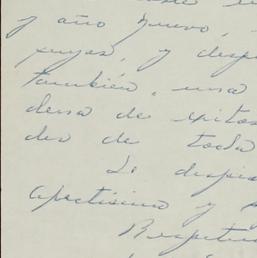 y año nuevo,
suyas, y desp
también, una
densa de exitos
des de toda
Le despi
afectísimo y
Respetu